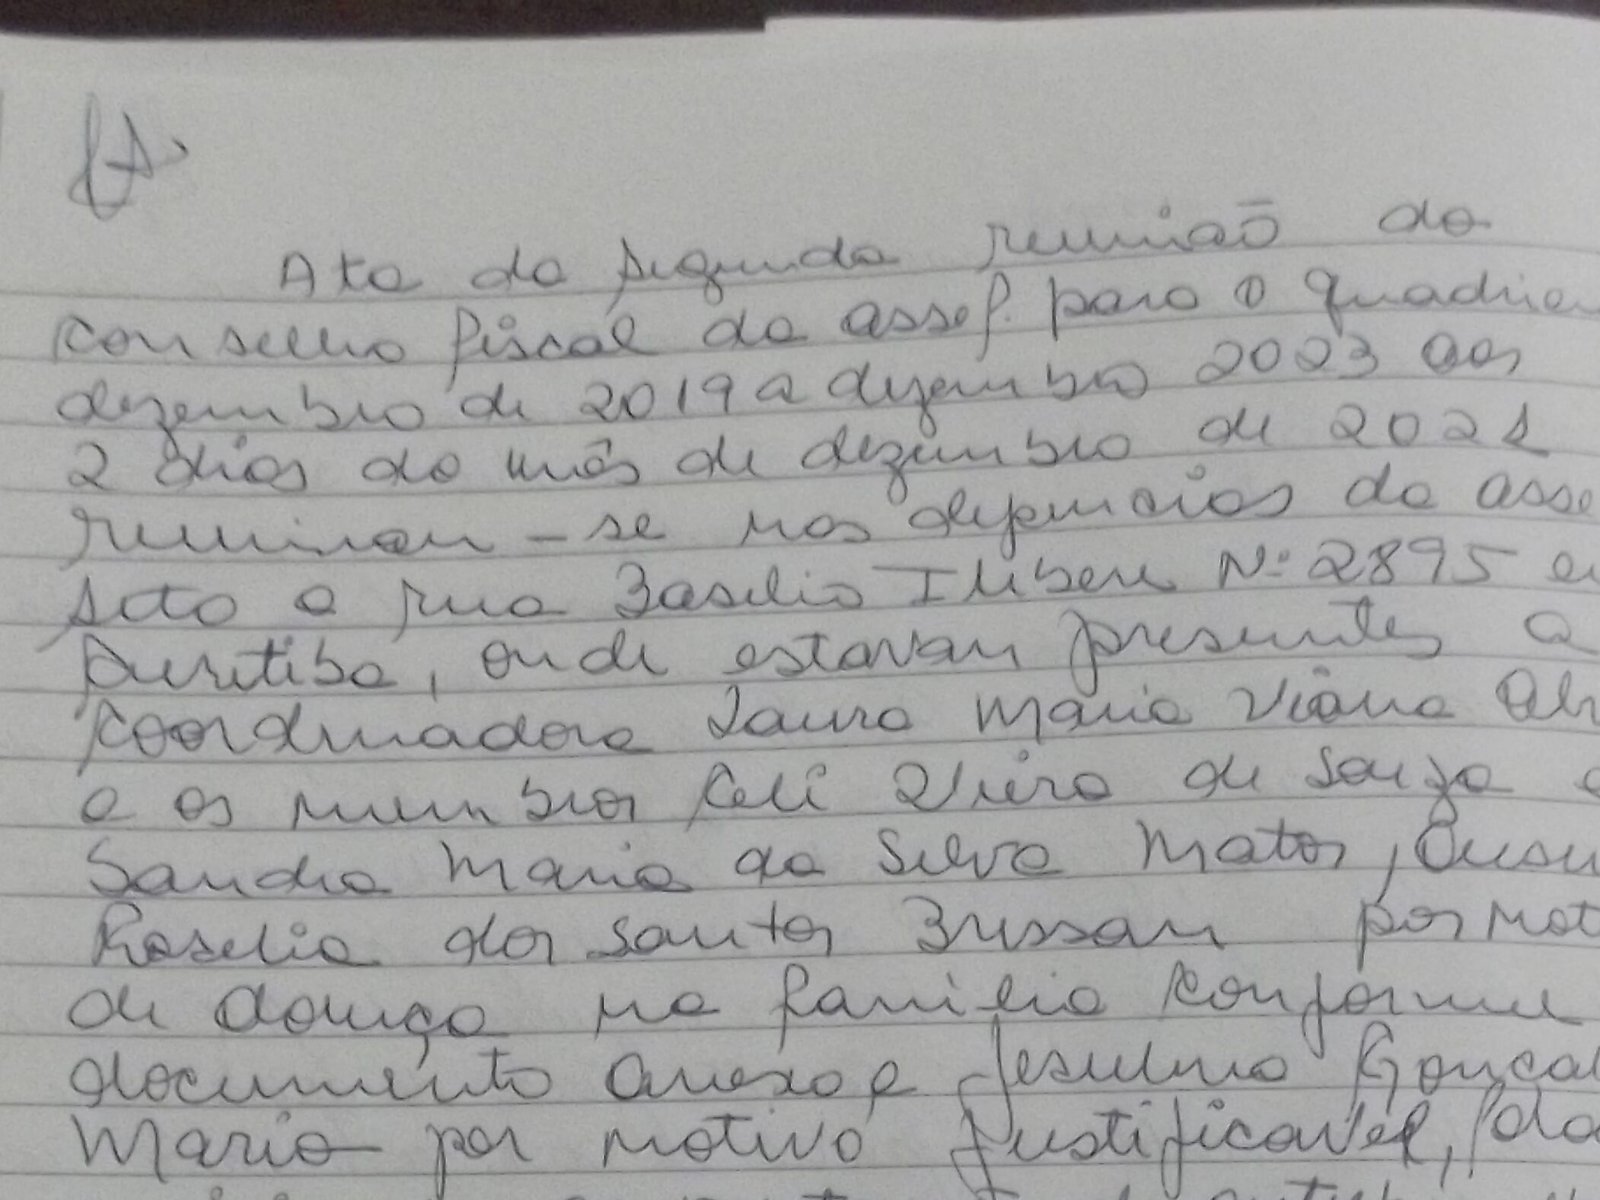 Ata da segunda reunião do
conselho fiscal da assef. para o quadrien
dezembro de 2019 a dezembro 2023 aos
2 dias do mês de dezembro de 2021
reuniram-se nas dependencias da asse
sito a rua Basilio Itibere Nº 2895 em
Curitiba, onde estavam presentes a
coordenadora Laura Maria Viana Alv
e os membros Celi Vieira de Souza e
Sandra Maria da Silva Matos, Ausen
Roselia dos Santos Brissan por mot
de doença na familia conforme
documento anexo e Jesulino Gonçal
Mario por motivo justificavel,